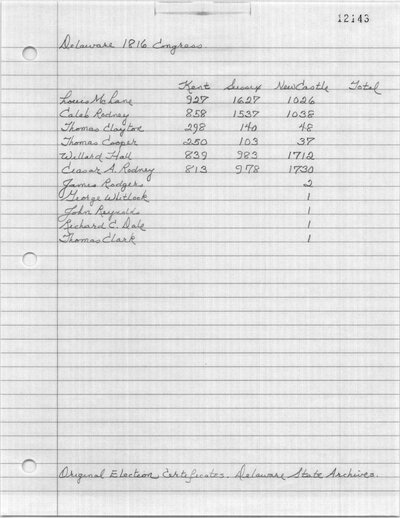 12143
Delaware 1816 Congress
Kent Sussex New Castle Total
Louis McLane 927 1627 1026
Caleb Rodney 858 1537 1038
Thomas Clayton 298 140 48
Thomas Cooper 250 103 37
Willard Hall 839 983 1712
Ceasar A. Rodney 813 978 1730
James Rodgers 2
George Whitlock 1
John Reynolds 1
Richard C. Dale 1
Thomas Clark 1
Original Election Certificates. Delaware State Archives.